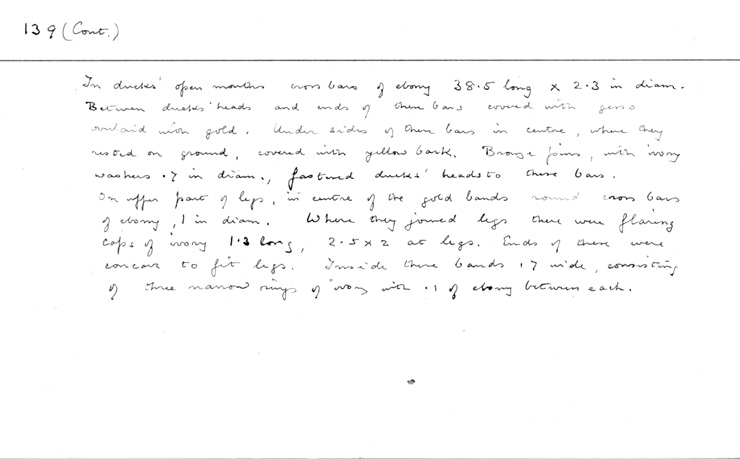 139 (Cont.)
In ducks' open mouths cross bars of ebony 38.5 long x 2.3 in diam.
Between ducks' heads and ends of these bars covered with gesso
overlaid with gold. Under sides of these bars in centre, where they
rested on ground, covered with yellow bark. Bronze pins, with ivory
washers .7 in diam., fastened ducks' heads to these bars.
On upper part of legs, in centre of the gold bands round cross bars
of ebony, 1 in diam. Where they joined legs there were flaring
caps of ivory 1.3 long, 2.5 x 2 at legs. Ends of these were
concave to fit legs. Inside these bands 1.7 wide, consisting
of three narrow rings of ivory with .1 of ebony between each.